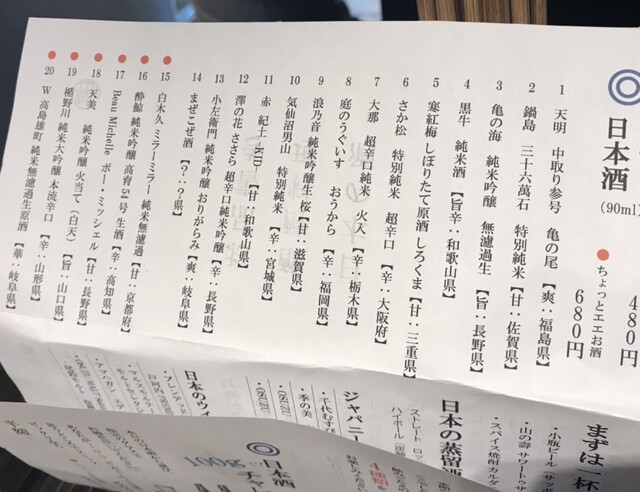 ◎日本酒
(90ml)
480円
●ちょっとエエお酒
680円
1 天明 中取り参号 亀の尾 【爽：福島県】
2 鍋島 三十六萬石 特別純米 【甘：佐賀県】
3 亀の海 純米吟醸 無濾過生 【旨：長野県】
4 黒牛 純米酒 【旨辛：和歌山県】
5 寒紅梅 しぼりたて原酒 しろくま 【甘：三重県】
6 さか松 特別純米 超辛口 【辛：大阪府】
7 大那 超辛口純米 火入 【辛：栃木県】
8 庭のうぐいす おうから 【辛：福岡県】
9 浪乃音 純米吟醸生 桜 【甘：滋賀県】
10 気仙沼男山 特別純米 【辛：宮城県】
11 赤 紀土 -KID- 【甘：和歌山県】
12 澤の花 ささら 超辛口純米吟醸 【辛：長野県】
13 小左衛門 純米吟醸 おりがらみ 【爽：岐阜県】
14 まぜこぜ酒 【？：？県】
●15 白木久 ミラーミラー 純米無濾過 【甘：京都府】
●16 酔鯨 純米吟醸 高育54号 生酒 【辛：高知県】
●17 Beau Michelle ボー・ミッシェル 【甘：長野県】
●18 天美 純米吟醸 火当て（白天） 【旨：山口県】
●19 楯野川 純米大吟醸 本流辛口 【辛：山形県】
●20 W 高島雄町 純米無濾過生原酒 【華：岐阜県】
まずは一杯
・小瓶ビール
・山の壽 サワー
・スパイス焼酎
日本の蒸留酒
ストレート ロッ
ハイボール
ジャパニー
・千代むすび
・季の美
日本のウイ
・ブレンデッド
・マルスモルテージ
・アマハガン エア
◎日本酒
100g